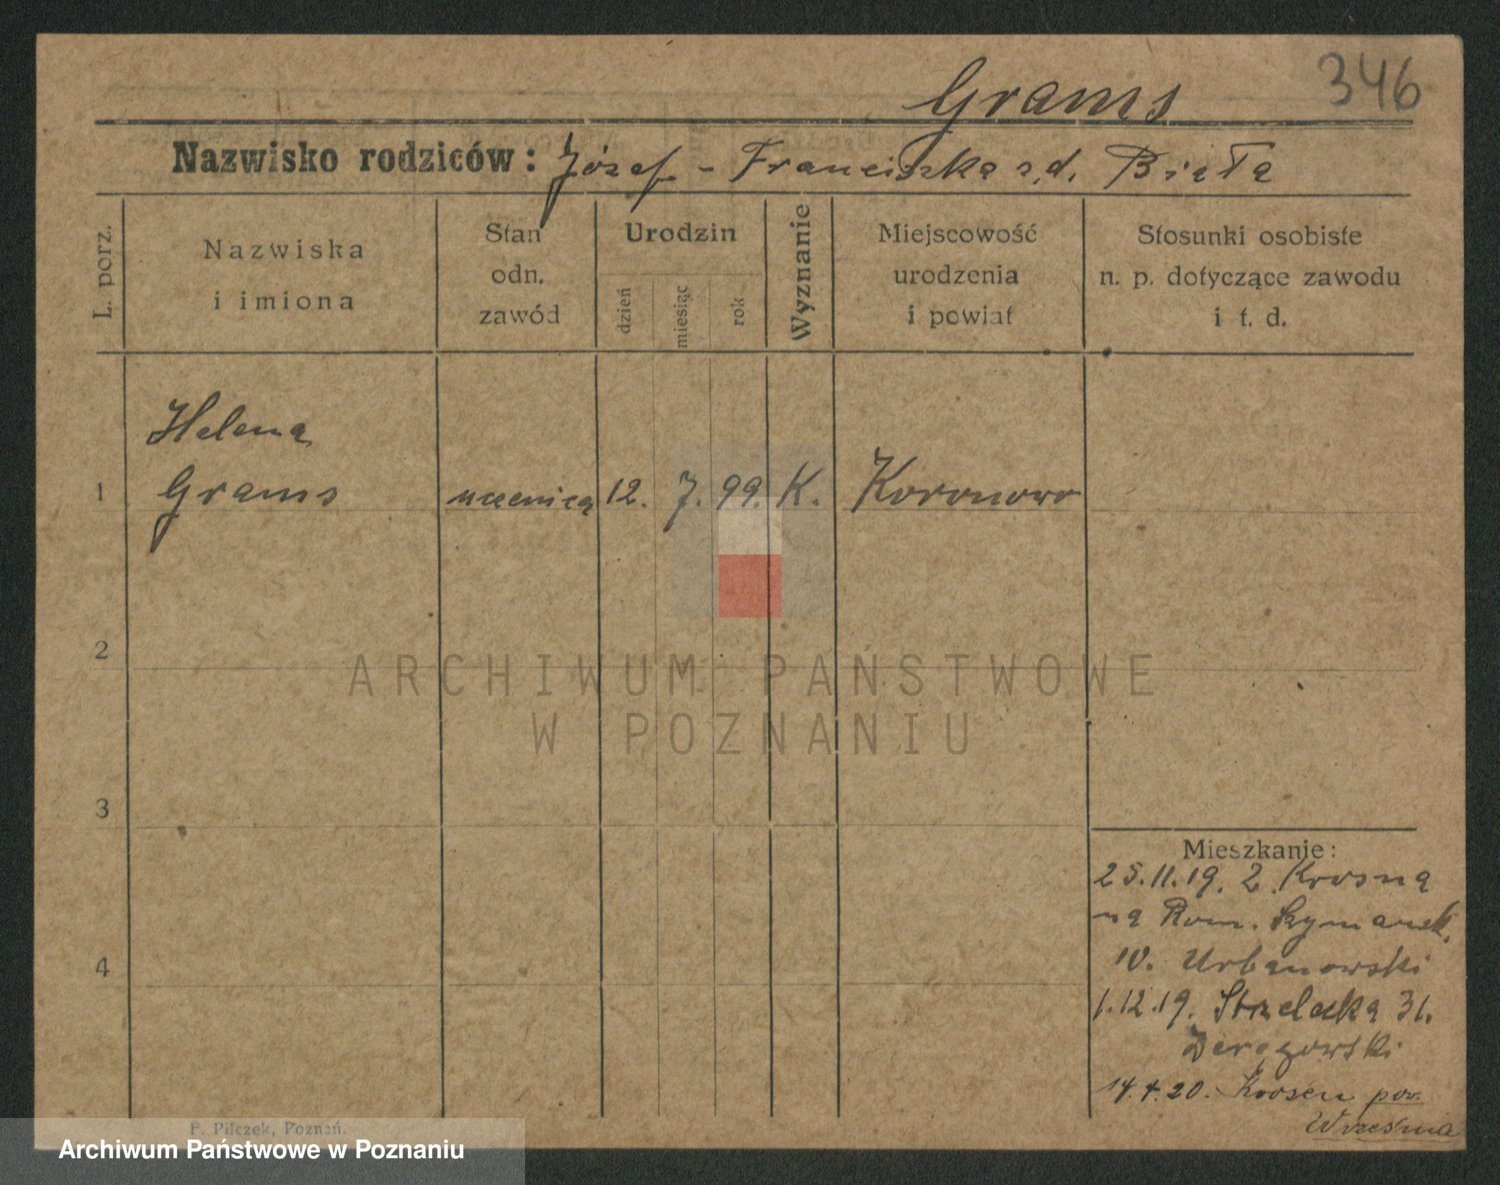 Grams 346
Nazwisko rodziców: Józef - Franciszka z,d. Biała
L. porz.
Nazwiska
i imiona
Stan
odn.
zawód
Urodzin
dzień
miesiąc
rok
Wyznanie
Miejscowość
urodzenia
i powiat
Stosunki osobiste
n. p. dotyczące zawodu
i t. d.
Helena
1 Grams uczenica 12. 7. 99. K. Koronowo
2
ARCHIWUM PAŃSTWOWE
W POZNANIU
3
Mieszkanie:
25.11.19. Z Krosna
na Rom. Szymansk.
10. Urbanowski
4
1.12.19. Strzelecka 31.
14.4.20. pow.
Września
F. Pilczek, Poznań.
Archiwum Państwowe w Poznaniu